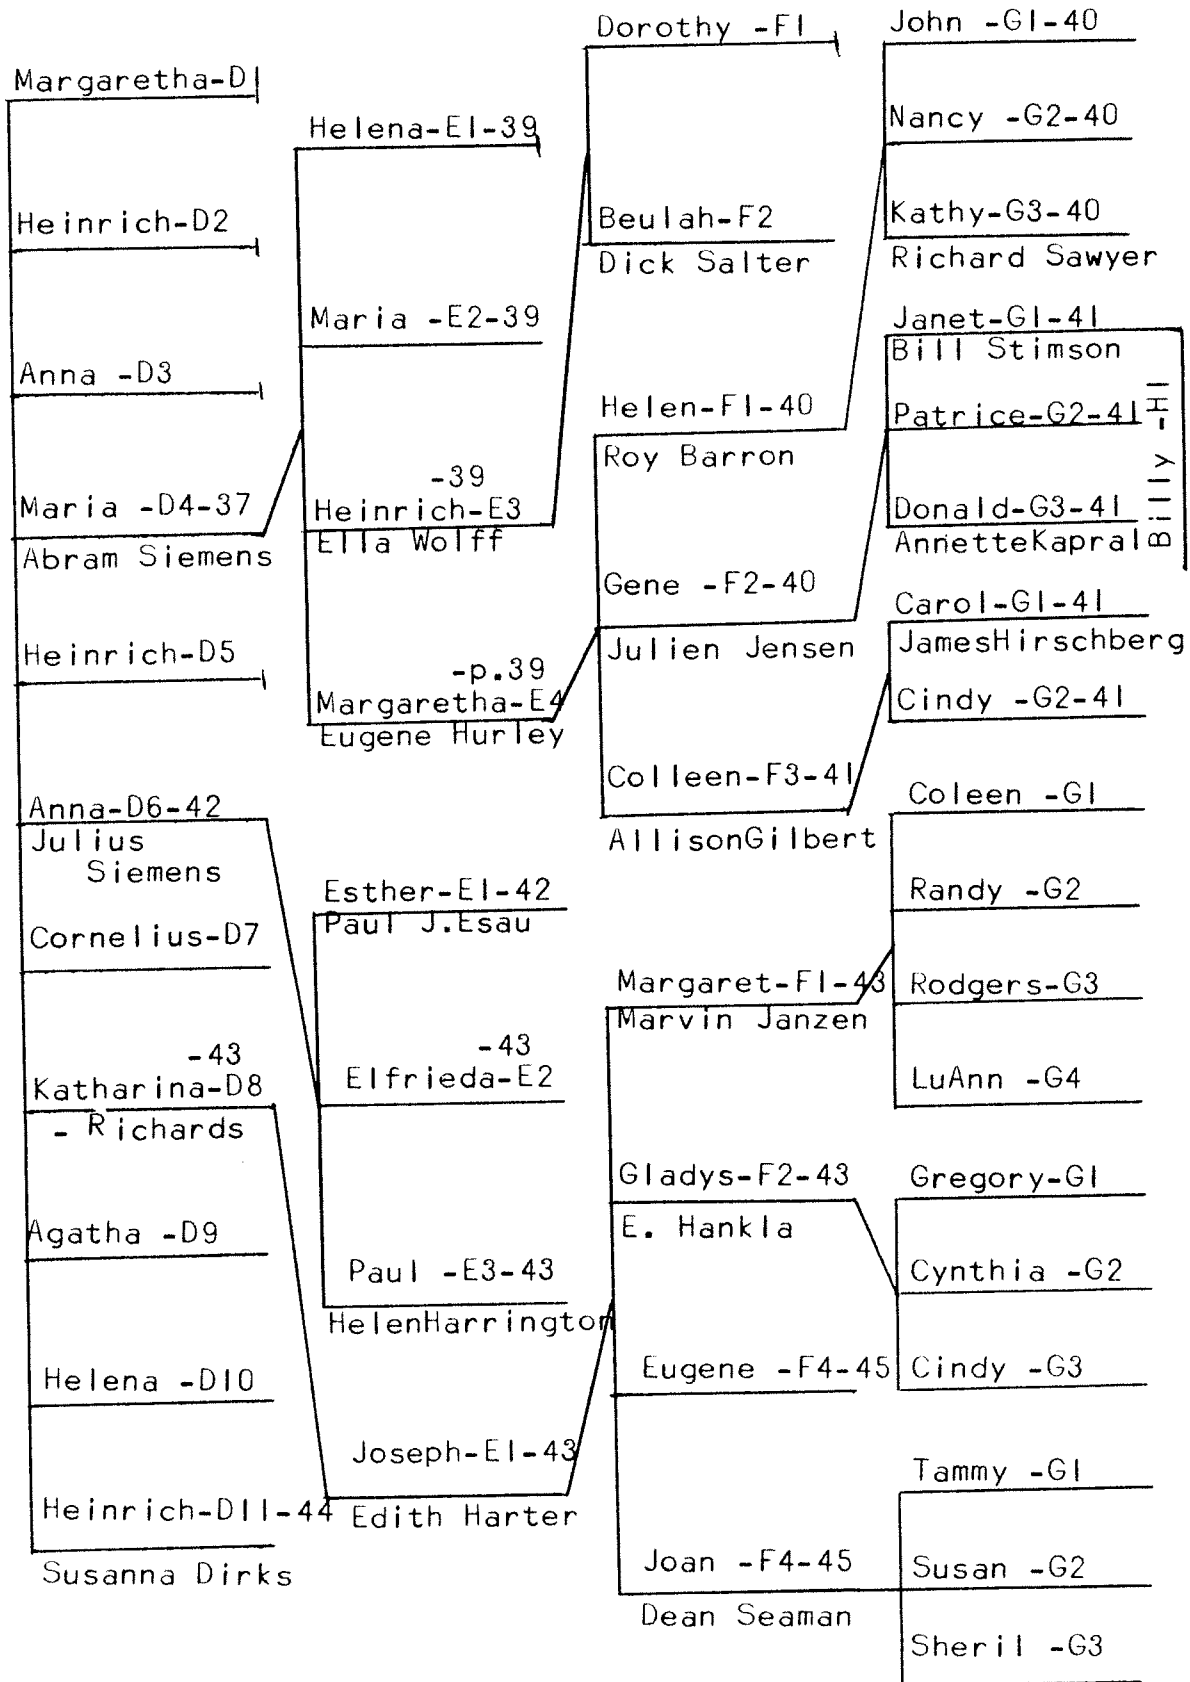 Margaretha-D1
Heinrich-D2
Anna -D3
Maria -D4-37
Abram Siemens
Heinrich-D5
Anna-D6-42
Julius
Siemens
Cornelius-D7
-43
Katharina-D8
- Richards
Agatha -D9
Helena -D10
Heinrich-D11-44
Susanna Dirks
Helena-E1-39
Maria -E2-39
-39
Heinrich-E3
Ella Wolff
-p.39
Margaretha-E4
Eugene Hurley
Esther-E1-42
Paul J.Esau
-43
Elfrieda-E2
Paul -E3-43
HelenHarrington
Joseph-E1-43
Edith Harter
Dorothy -F1
Beulah-F2
Dick Salter
Helen-F1-40
Roy Barron
Gene -F2-40
Julien Jensen
Colleen-F3-41
AllisonGilbert
Margaret-F1-43
Marvin Janzen
Gladys-F2-43
E. Hankla
Eugene -F4-45
Joan -F4-45
Dean Seaman
John -G1-40
Nancy -G2-40
Kathy-G3-40
Richard Sawyer
Janet-G1-41
Bill Stimson
Patrice-G2-41
Donald-G3-41
AnnetteKapral
Billy -H1
Carol-G1-41
JamesHirschberg
Cindy -G2-41
Coleen -G1
Randy -G2
Rodgers-G3
LuAnn -G4
Gregory-G1
Cynthia -G2
Cindy -G3
Tammy -G1
Susan -G2
Sheril -G3